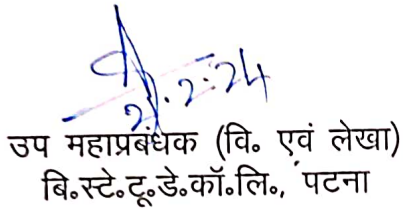 2.2.24
उप महाप्रबंधक (वि॰ एवं लेखा)
बि॰स्टे॰टू॰डे॰कॉ॰लि॰, पटना